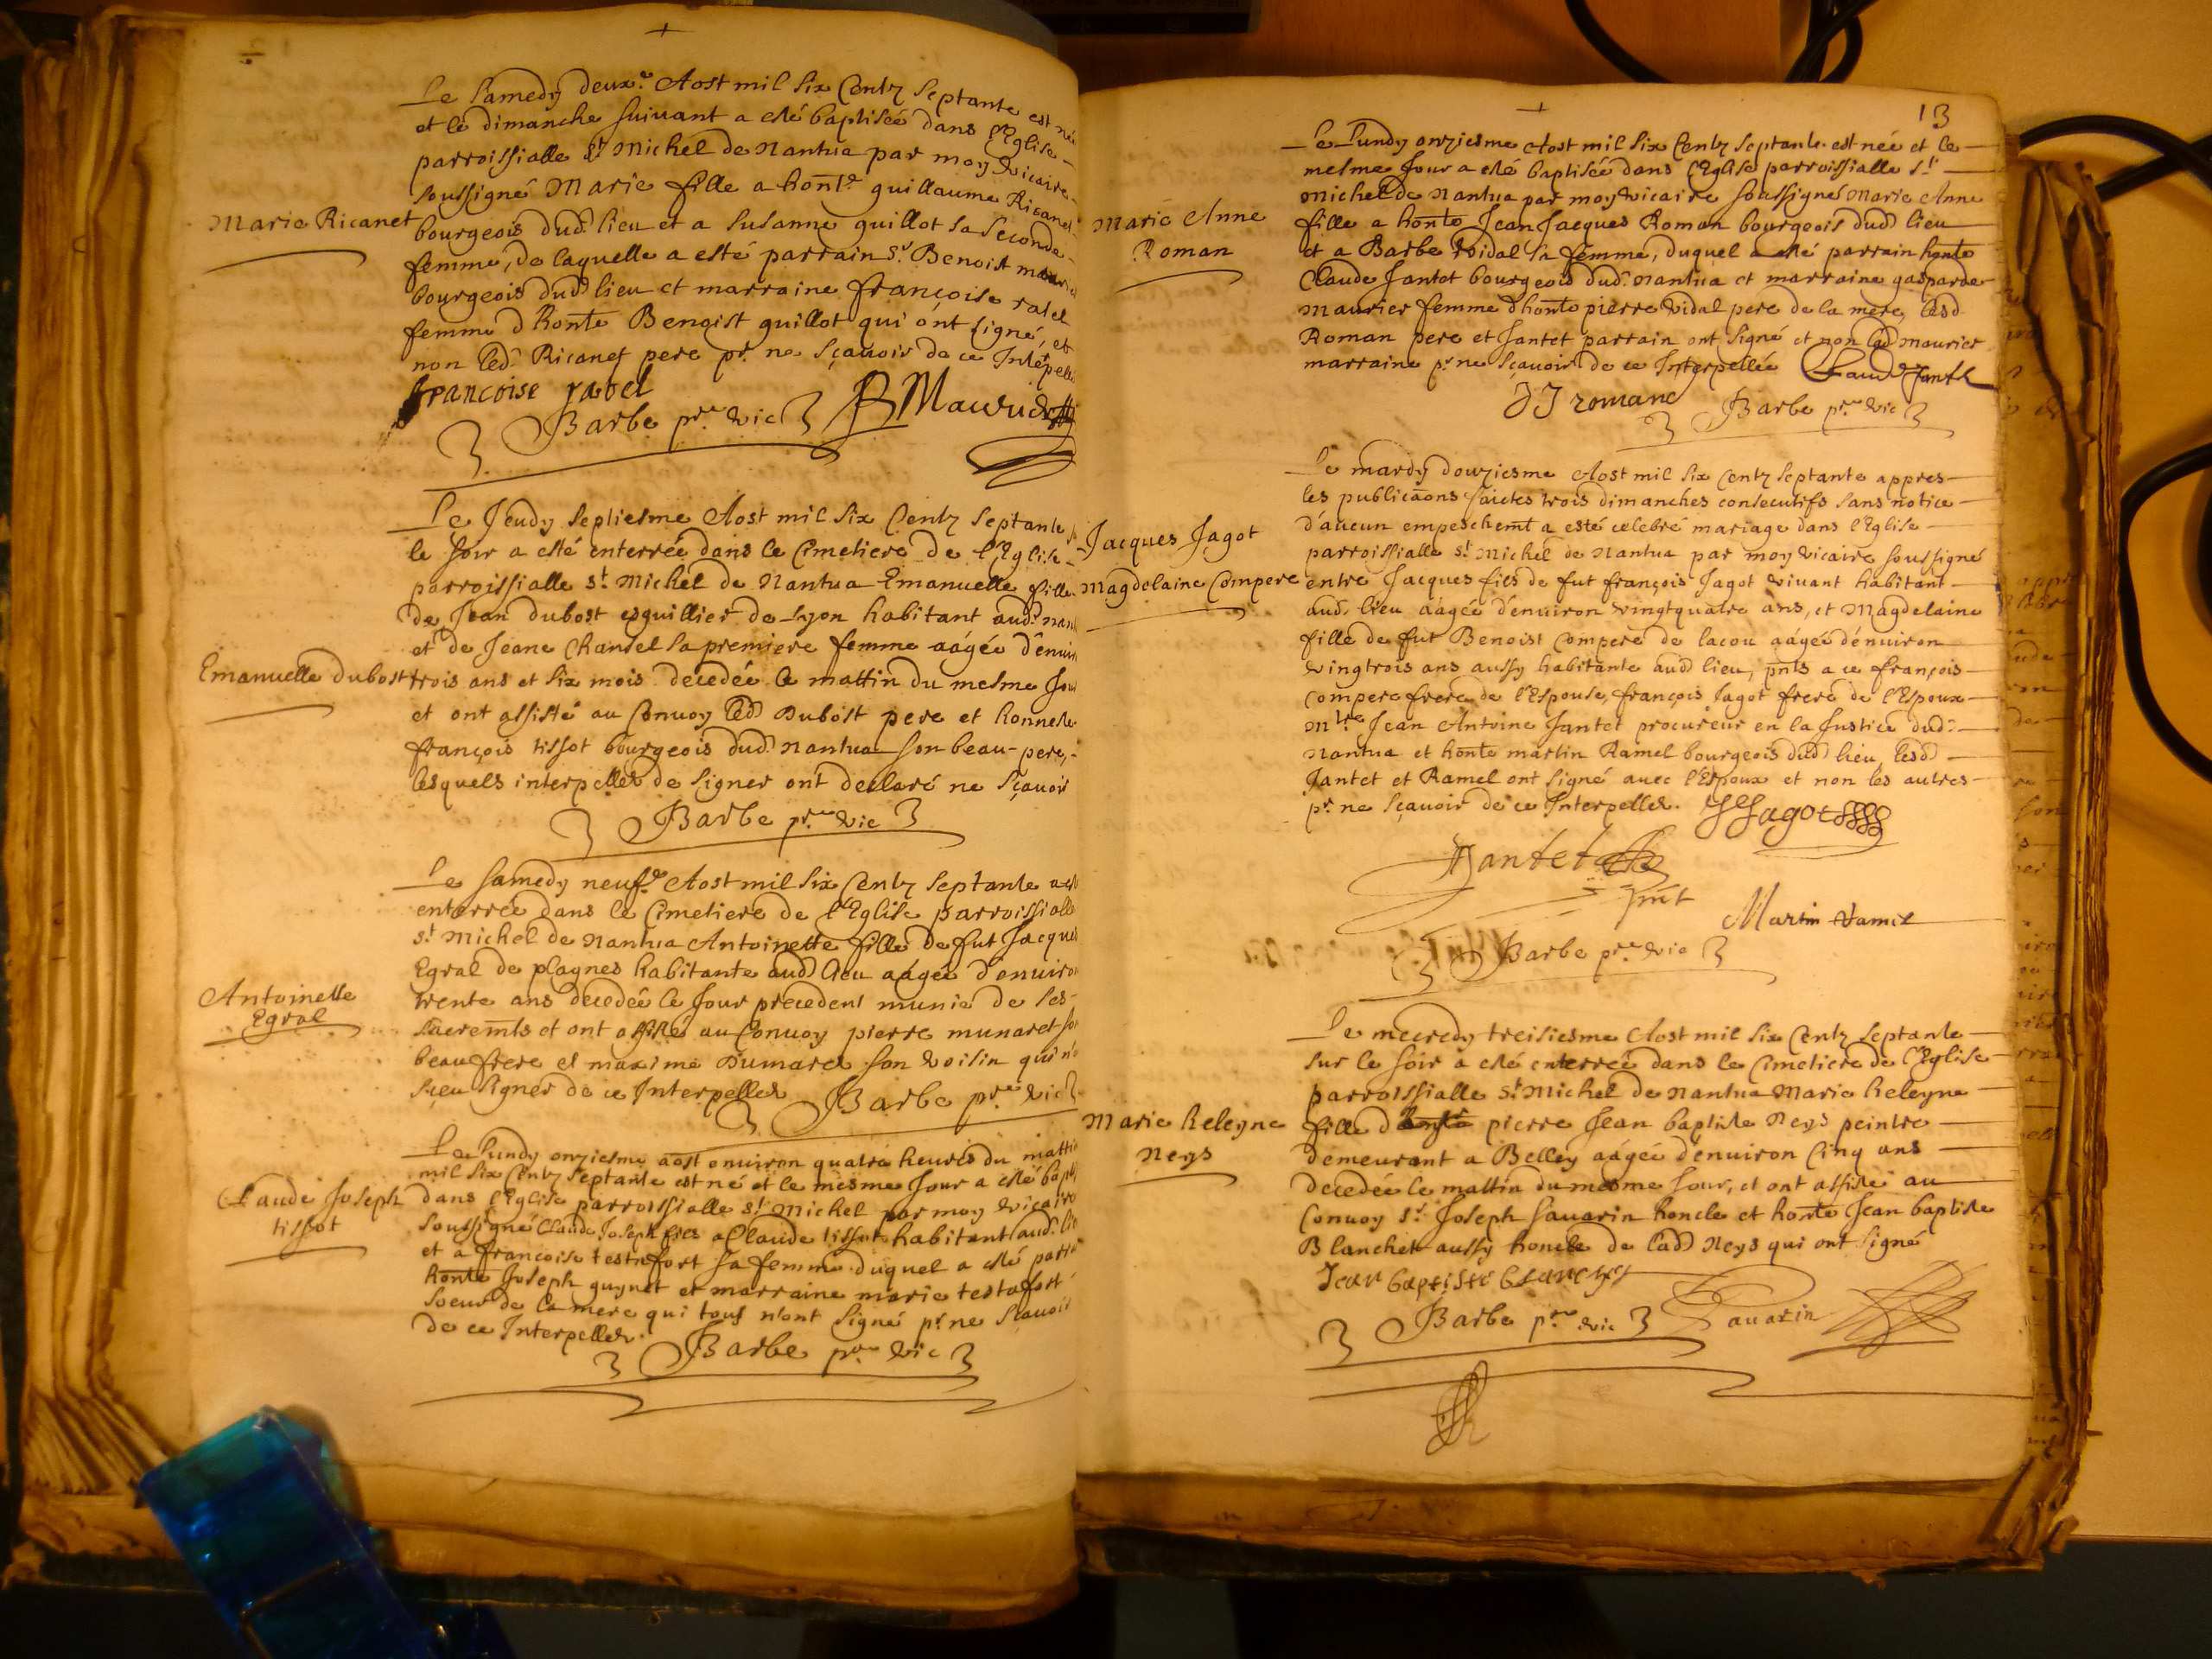 Le samedy deux.e Aost mil six Centz septante est née
et le dimanche suiuant a esté baptisée dans l'Eglise
parroissialle s.t Michel de Nantua par moy vicaire
soussigné Marie fille a hon.te guillaume Ricanet
Marie Ricanet
bourgeois dud. lieu et a Susanne guillot sa seconde
femme, de laquelle a esté parrain s.r Benoist
bourgeois dud lieu et marraine françoise ratel
femme d honte Benoist guillot qui ont signé, et
non led. Ricanet pere p.r ne sçauoir de ce Interpellé
francoise ratel
Barbe p.re vic B Maurier
Le Jeudy septiesme Aost mil six Centz septante
le soir a esté enterrée dans le Cimetiere de l'Eglise
parroissialle s.t Michel de Nantua Emanuelle fille
de Jean dubost esguillier de Lyon habitant aud.
et de Jeane Chansel sa premiere femme aagée d'enuiron
Emanuelle dubost
trois ans et six mois decedée le mattin du mesme Jour
et ont assisté au Conuoy led Dubost pere et honneste
françois tissot bourgeois dud. Nantua son beau-pere,
lesquels interpellez de signer ont declaré ne sçauoir
Barbe p.re vic
Le samedy neuf.e Aost mil six Centz septante a esté
enterrée dans le Cimetiere de l'Eglise parroissialle
s.t Michel de Nantua Antoinette fille de fut Jacques
Egral de plagnes habitante aud lieu aagée d'enuiron
Antoinette
Egral
trente ans decedée le Jour precedent munie de ses
sacrem̄ts et ont assisté au Conuoy pierre munaret son
beaufrere et maxime Dumarest son voisin qui n'o
sceu signer de ce Interpellez Barbe p.re vic
Le Lundy onziesme aost enuiron quatre heures du mattin
mil six Centz septante est né et le mesme Jour a esté baptisé
Claude Joseph
tissot
dans l'Eglise parroissialle s.t Michel par moy vicaire
soussigné Claude Joseph fils a Claude tissot habitant aud. lieu
et a francoise testufort sa femme duquel a esté parrain
honte Joseph guynet et marraine marie testufort
soeur de la mere qui tous n'ont signé p.r ne sçauoir
de ce Interpellez.
Barbe p.re vic
13
Le Lundy onziesme Aost mil six Centz septante est née et le
mesme Jour a esté baptisée dans l'Eglise parroissialle s.t
Michel de Nantua par moy vicaire soussigné Marie Anne
Marie Anne
Roman
fille a honte Jean Jacques Roman bourgeois dud lieu
et a Barbe vidal sa femme, duquel a esté parrain honte
Claude Jantet bourgeois dud. Nantua et marraine gasparde
Maurier femme d'honte pierre vidal pere de la mere, lesd
Roman pere et Jantet parrain ont signé et non lad Maurier
marraine p.r ne sçauoir de ce Interpellée Claude Jantet
JJ romanc
Barbe p.re vic
Le mardy douziesme Aost mil six Centz septante appres
les publicāons faictes trois dimanches consecutifs sans notice
d'aucun empeschemt a esté celebré mariage dans l'Eglise
parroissialle s.t Michel de Nantua par moy vicaire soussigné
Jacques Jagot
Magdelaine Compere
entre Jacques fils de fut françois Jagot viuant habitant
aud. lieu aagée d'enuiron vingtquatre ans, et Magdelaine
fille de fut Benoist Compere de lacou aagée d'enuiron
vingtrois ans aussy habitante aud lieu, pnts a ce françois
Compere frere de l'Espouse, françois Jagot frere de l'Espoux
M.tre Jean Antoine Jantet procureur en la Justice dud.
Nantua et honte martin Ramel bourgeois dud lieu, lesd
Jantet et Ramel ont signé auec l'Espoux et non les autres
p.r ne sçauoir de ce Interpellez. JJagot
Jantet
pnt
Martin Ramel
Barbe p.re vic
Le mecredy treisiesme Aost mil six Centz septante
sur le soir a esté enterrée dans le Cimetiere de l'Eglise
parroissialle s.t Michel de Nantua Marie heleyne
Marie heleyne
Neys
fille d honte pierre Jean baptiste Neys peintre
demeurant a Belley aagée d'enuiron Cinq ans
decedée le mattin du mesme Jour, et ont assisté au
Conuoy s.r Joseph sauarin honcle et honte Jean baptiste
Blanchet aussy honcle de lad Neys qui ont signé
Jean baptiste blanchet
Barbe p.re vic Sauarin